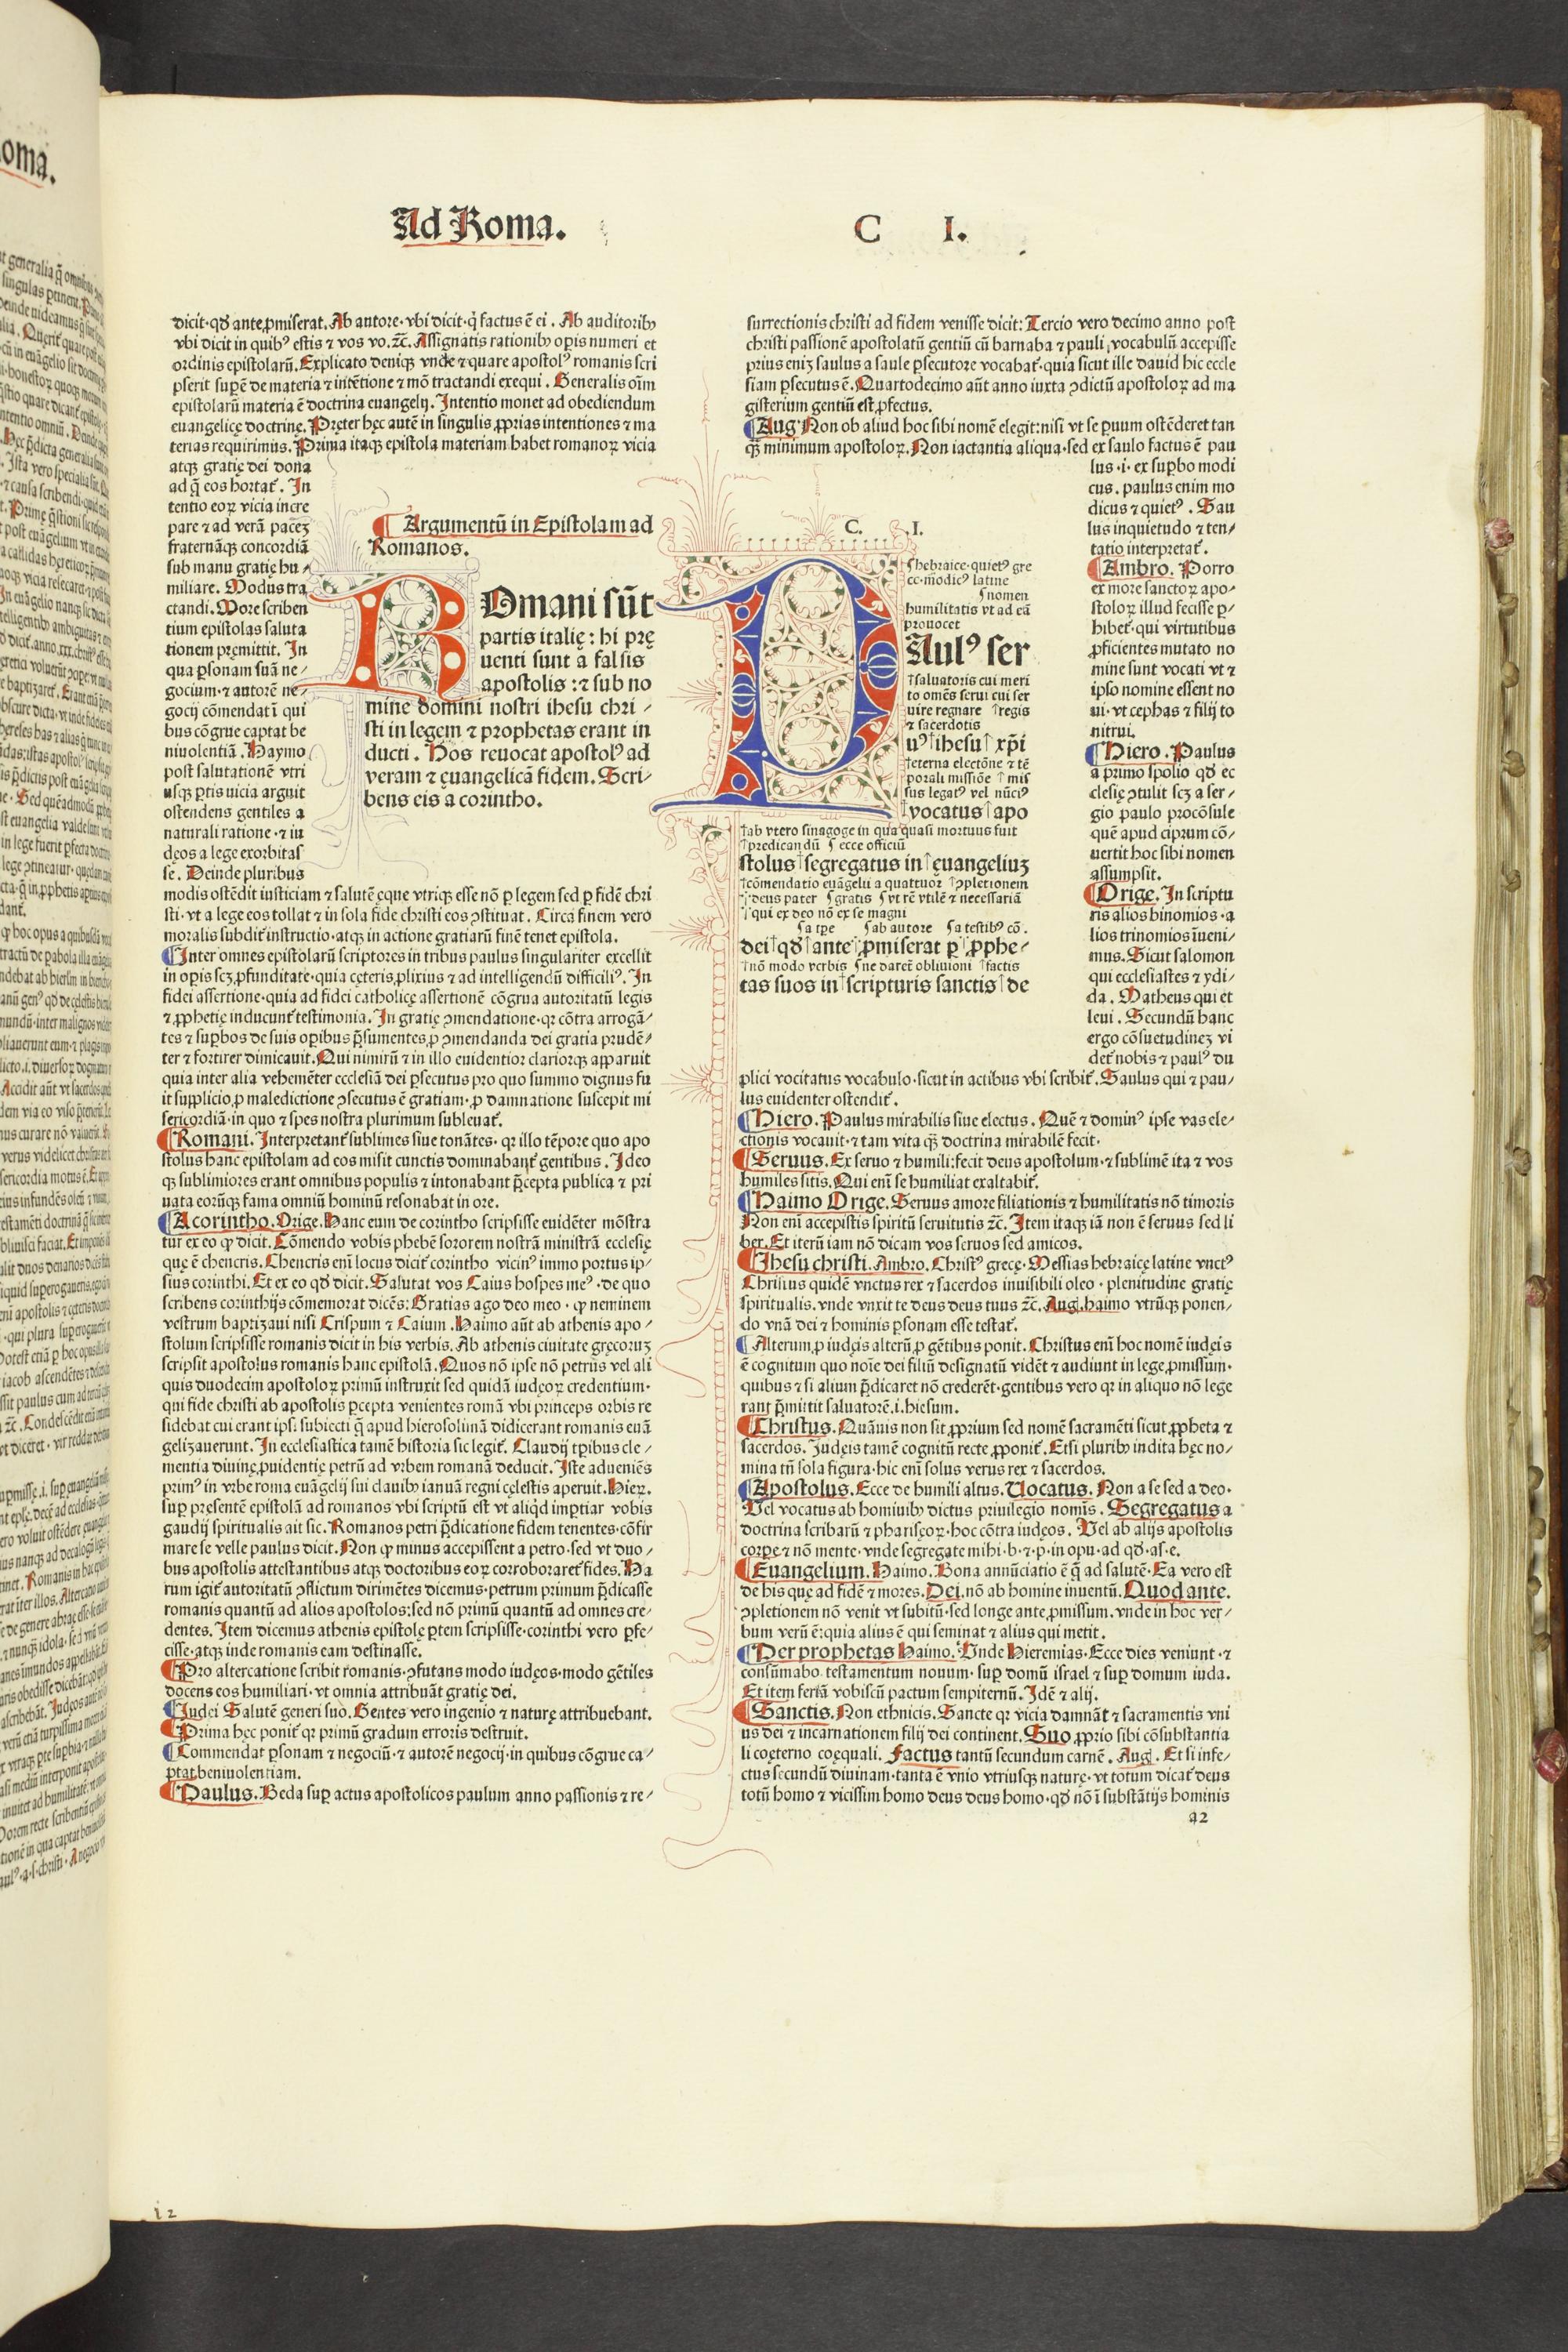 Ad Roma.
C I.
dicit·qđ ante ꝓmiserat. Ab autore·vbi dicit·q̃ factus ẽ ei. Ab auditoribꝫ
vbi dicit in quibꝰ estis ⁊ vos vo.⁊c̃. Assignatis rationibꝫ opis numeri et
ordinis epistolarũ. Explicato deniqꝫ vnde ⁊ quare apostolꝰ romanis scri
pserit supẽ de materia ⁊ intẽtione ⁊ mõ tractandi exequi. Generalis oĩm
epistolarũ materia ẽ doctrina euangelij. Intentio monet ad obediendum
euangelicę doctrinę. Pręter hęc autẽ in singulis ꝓprias intentiones ⁊ ma
terias requirimus. Prima itaqꝫ epistola materiam habet romanoꝝ vicia
atqꝫ gratię dei dona
ad q̃ eos hortat᷑. In
tentio eoꝝ vicia incre
pare ⁊ ad verã pacẽꝫ
fraternãqꝫ concordiã
sub manu gratię hu⸗
miliare. Modus tra
ctandi. More scriben
tium epistolas saluta
tionem pręmittit. In
qua ꝑsonam suã ne⸗
gocium·⁊ autorẽ ne⸗
gocij cõmendat ĩ qui
bus cõgrue captat be
niuolentiã. Haymo
post salutationẽ vtri
usqꝫ ꝑtis uicia arguit
ostendens gentiles a
naturali ratione·⁊ iu
dęos a lege exorbitas
se. Deinde pluribus
modis ostẽdit iusticiam ⁊ salutẽ ęque vtriqꝫ esse nõ ꝑ legem sed ꝑ fidẽ chri
sti·vt a lege eos tollat ⁊ in sola fide christi eos ꝯstituat. Circa finem vero
moralis subdit᷑ instructio·atqꝫ in actione gratiarũ finẽ tenet epistola.
Inter omnes epistolarũ scriptores in tribus paulus singulariter excellit
in opis scꝫ ꝓfunditate·quia cęteris ꝓlixius ⁊ ad intelligendũ difficiliꝰ. In
fidei assertione·quia ad fidei catholicę assertionẽ cõgrua autoritatũ legis
⁊ ꝓphetię inducunt᷑ testimonia. In gratię ꝯmendatione·qꝛ cõtra arrogã⸗
tes ⁊ supbos de suis opibus p̃sumentes ꝓ ꝯmendanda dei gratia prudẽ⸗
ter ⁊ fortirer dimicauit. Qui nimirũ ⁊ in illo euidentior clariorqꝫ apparuit
quia inter alia vehemẽter ecclesiã dei ꝑsecutus pro quo summo dignus fu
it supplicio ꝓ maledictione ꝯsecutus ẽ gratiam·ꝓ damnatione suscepit mi
sericordiã·in quo ⁊ spes nostra plurimum subleuat᷑.
Romani. Interpretant᷑ sublimes siue tonãtes·qꝛ illo tẽpore quo apo
stolus hanc epistolam ad eos misit cunctis dominabant᷑ gentibus. Ideo
qꝫ sublimiores erant omnibus populis ⁊ intonabant p̃cepta publica ⁊ pri
uata eorũqꝫ fama omniũ hominũ resonabat in ore.
A corintho. Orige. Hanc eum de corintho scripsisse euidẽter mõstra
tur ex eo ꝙ dicit. Cõmendo vobis phebẽ sororem nostrã ministrã ecclesię
quę ẽ chencris. Chencris enĩ locus dicit᷑ corintho vicinꝰ immo portus ip⸗
sius corinthi. Et ex eo qđ dicit. Salutat vos Caius hospes meꝰ·de quo
scribens corinthijs cõmemorat dicẽs: Gratias ago deo meo·ꝙ neminem
vestrum baptizaui nisi Crispum ⁊ Caium. Haimo aũt ab athenis apo⸗
stolum scripsisse romanis dicit in his verbis. Ab athenis ciuitate gręcoruꝫ
scripsit apostolus romanis hanc epistolã. Quos nõ ipse nõ petrus vel ali
quis duodecim apostoloꝝ primũ instruxit sed quidã iudęoꝝ credentium·
qui fide christi ab apostolis ꝑcepta venientes romã vbi princeps orbis re
sidebat cui erant ipsi subiecti q̃ apud hierosolimã didicerant romanis euã
gelizauerunt. In ecclesiastica tamẽ historia sic legit᷑. Claudij tꝑibus cle⸗
mentia diuinę ꝓuidentię petrũ ad vrbem romanã deducit. Iste adueniẽs
primꝰ in vrbe roma euãgelij sui clauibꝫ ianuã regni cęlestis aperuit. Hieꝝ.
sup presentẽ epistolã ad romanos vbi scriptũ est vt aliqd impertiar vobis
gaudij spiritualis ait sic. Romanos petri p̃dicatione fidem tenentes·cõfir
mare se velle paulus dicit. Non ꝙ minus accepissent a petro·sed vt duo⸗
bus apostolis attestantibus atqꝫ doctoribus eoꝝ corroboraret᷑ fides. Ha
rum igit᷑ autoritatũ ꝯflictum dirimẽtes dicemus·petrum primum p̃dicasse
romanis quantũ ad alios apostolos:sed nõ primũ quantũ ad omnes cre⸗
dentes. Item dicemus athenis epistolę ꝑtem scripsisse·corinthi vero ꝑfe⸗
cisse·atqꝫ inde romanis eam destinasse.
Pro altercatione scribit romanis·ꝯfutans modo iudęos·modo gẽtiles
docens eos humiliari·vt omnia attribuãt gratię dei.
Iudei Salutẽ generi suo. Gentes vero ingenio ⁊ naturę attribuebant.
Prima hęc ponit᷑ qꝛ primũ gradum erroris destruit.
Commendat ꝑsonam ⁊ negociũ·⁊ autorẽ negocij·in quibus cõgrue ca⸗
ptat beniuolentiam.
Paulus. Beda sup actus apostolicos paulum anno passionis ⁊ re⸗
Argumentũ in Epistolam ad
Romanos.
ROmani sũt
partis italię: hi prę
uenti sunt a falsis
apostolis:⁊ sub no
mine domini nostri ihesu chri⸗
sti in legem ⁊ prophetas erant in
ducti. Hos reuocat apostolꝰ ad
veram ⁊ ęuangelicã fidem. Scri⸗
bens eis a corintho.
surrectionis christi ad fidem venisse dicit: Tercio vero decimo anno post
christi passionẽ apostolatũ gentiũ cũ barnaba ⁊ pauli vocabulũ accepisse
prius eniꝫ saulus a saule ꝑsecutore vocabat᷑·quia sicut ille dauid hic eccle
siam ꝑsecutus ẽ. Quartodecimo aũt anno iuxta ꝯdictũ apostoloꝝ ad ma
gisterium gentiũ est ꝓfectus.
Aug. Non ob aliud hoc sibi nomẽ elegit:nisi vt se paruum ostẽderet tan
qꝫ minimum apostoloꝝ. Non iactantia aliqua·sed ex saulo factus ẽ pau
lus·i·ex supbo modi
cus. paulus enim mo
dicus ⁊ quietꝰ. Sau
lus inquietudo ⁊ ten⸗
tatio interpretat᷑.
Ambro. Porro
ex more sanctoꝝ apo⸗
stoloꝝ illud fecisse ꝑ⸗
hibet᷑·qui virtutibus
ꝓficientes mutato no
mine sunt vocati vt ⁊
ipso nomine essent no
ui·vt cephas ⁊ filij to
nitrui.
Hiero. Paulus
a primo spolio qđ ec
clesię ꝯtulit scꝫ a ser⸗
gio paulo procõsule
quẽ apud ciprum cõ⸗
uertit hoc sibi nomen
assumpsit.
Orige. In scriptu
ris alios binomios·a
lios trinomios ĩueni⸗
mus. Sicut salomon
qui ecclesiastes ⁊ ydi⸗
da. Matheus qui et
leui. Secundũ hanc
ergo cõsuetudineꝫ vi
det᷑ nobis ⁊ paulꝰ du
C. I.
hebraice·quietꝰ gre
ce·modicꝰ latine
nomen
humilitatis vt ad eã
prouocet
PAulꝰ ser
saluatoris cui meri
to omẽs serui cui ser
uire regnare regis
⁊ sacerdotis
uꝰ ihesu xp̃i
eterna electõne ⁊ tẽ
porali missiõe mis
sus legatꝰ vel nũciꝰ
vocatus apo
ab vtero sinagoge in qua quasi mortuus fuit
predicandũ ecce officiũ
stolus segregatus in ęuangeliuꝫ
cõmendatio euãgelii a quattuor ꝯpletionem
deus pater gratis vt rẽ vtilẽ ⁊ necessariã
qui ex deo nõ ex se magni
a tꝑe ab autore a testibꝫ cõ.
dei qđ ante ꝓmiserat ꝑ ꝓphe⸗
nõ modo verbis ne daret᷑ obliuioni factis
tas suos in scripturis sanctis de
plici vocitatus vocabulo·sicut in actibus vbi scribit᷑. Saulus qui ⁊ pau⸗
lus euidenter ostendit᷑.
Hiero. Paulus mirabilis siue electus. Quẽ ⁊ dominꝰ ipse vas ele⸗
ctionis vocauit·⁊ tam vita qꝫ doctrina mirabilẽ fecit·
Seruus. Ex seruo ⁊ humili:fecit deus apostolum·⁊ sublimẽ ita ⁊ vos
humiles sitis. Qui enĩ se humiliat exaltabit᷑.
Haimo Orige. Seruus amore filiationis ⁊ humilitatis nõ timoris
Non enĩ accepistis spiritũ seruitutis ⁊c̃. Item itaqꝫ iã non ẽ seruus sed li
ber. Et iterũ iam nõ dicam vos seruos sed amicos.
Jhesu christi. Ambro. Christꝰ grecę·Messias hebraicę latine vnctꝰ
Christus quidẽ vnctus rex ⁊ sacerdos inuisibili oleo·plenitudine gratię
spiritualis·vnde vnxit te deus deus tuus ⁊c̃. Aug. haimo vtrũqꝫ ponen⸗
do vnã dei ⁊ hominis ꝑsonam esse testat᷑.
Alterum ꝓ iudęis alterũ ꝓ gẽtibus ponit. Christus enĩ hoc nomẽ iudęis
ẽ cognitum quo noĩe dei filiũ designatũ vidẽt ⁊ audiunt in lege ꝓmissum·
quibus ⁊ si alium p̃dicaret nõ crederẽt·gentibus vero qꝛ in aliquo nõ lege
rant p̃mittit saluatorẽ.i.hiesum.
Christus. Quãuis non sit ꝓprium sed nomẽ sacramẽti sicut ꝓpheta ⁊
sacerdos. Iudęis tamẽ cognitũ recte ꝓponit᷑. Etsi pluribꝫ indita hęc no⸗
mina tñ sola figura·hic enĩ solus verus rex ⁊ sacerdos.
Apostolus. Ecce de humili altus. Uocatus. Non a se sed a deo·
Vel vocatus ab hominibꝫ dictus priuilegio nomĩs. Segregatus a
doctrina scribarũ ⁊ pharisęoꝝ·hoc cõtra iudęos. Vel ab alijs apostolis
corpe ⁊ nõ mente·vnde segregate mihi·b·⁊·p·in opu·ad qđ·as·e.
Euangelium. Haimo. Bona annũciatio ẽ q̃ ad salutẽ·Ea vero est
de his quę ad fidẽ ⁊ mores. Dei.nõ ab homine inuentũ. Quod ante.
ꝯpletionem nõ venit vt subitũ·sed longe ante ꝓmissum·vnde in hoc ver⸗
bum verũ ẽ:quia alius ẽ qui seminat ⁊ alius qui metit.
Per prophetas Haimo. Unde Hieremias·Ecce dies veniunt·⁊
consũmabo testamentum nouum·sup domũ israel ⁊ sup domum iuda.
Et item feriã vobiscũ pactum sempiternũ. Idẽ ⁊ alij.
Sanctis. Non ethnicis. Sancte qꝛ vicia damnãt ⁊ sacramentis vni
us dei ⁊ incarnationem filij dei continent. Suo ꝓprio sibi cõsubstantia
li coęterno coęquali. Factus tantũ secundum carnẽ. Aug. Et si infe⸗
ctus secundũ diuinam·tanta ẽ vnio vtriusqꝫ naturę·vt totum dicat᷑ deus
totũ homo ⁊ vicissim homo deus deus homo·qđ nõ ĩ substãtijs hominis
a2
12